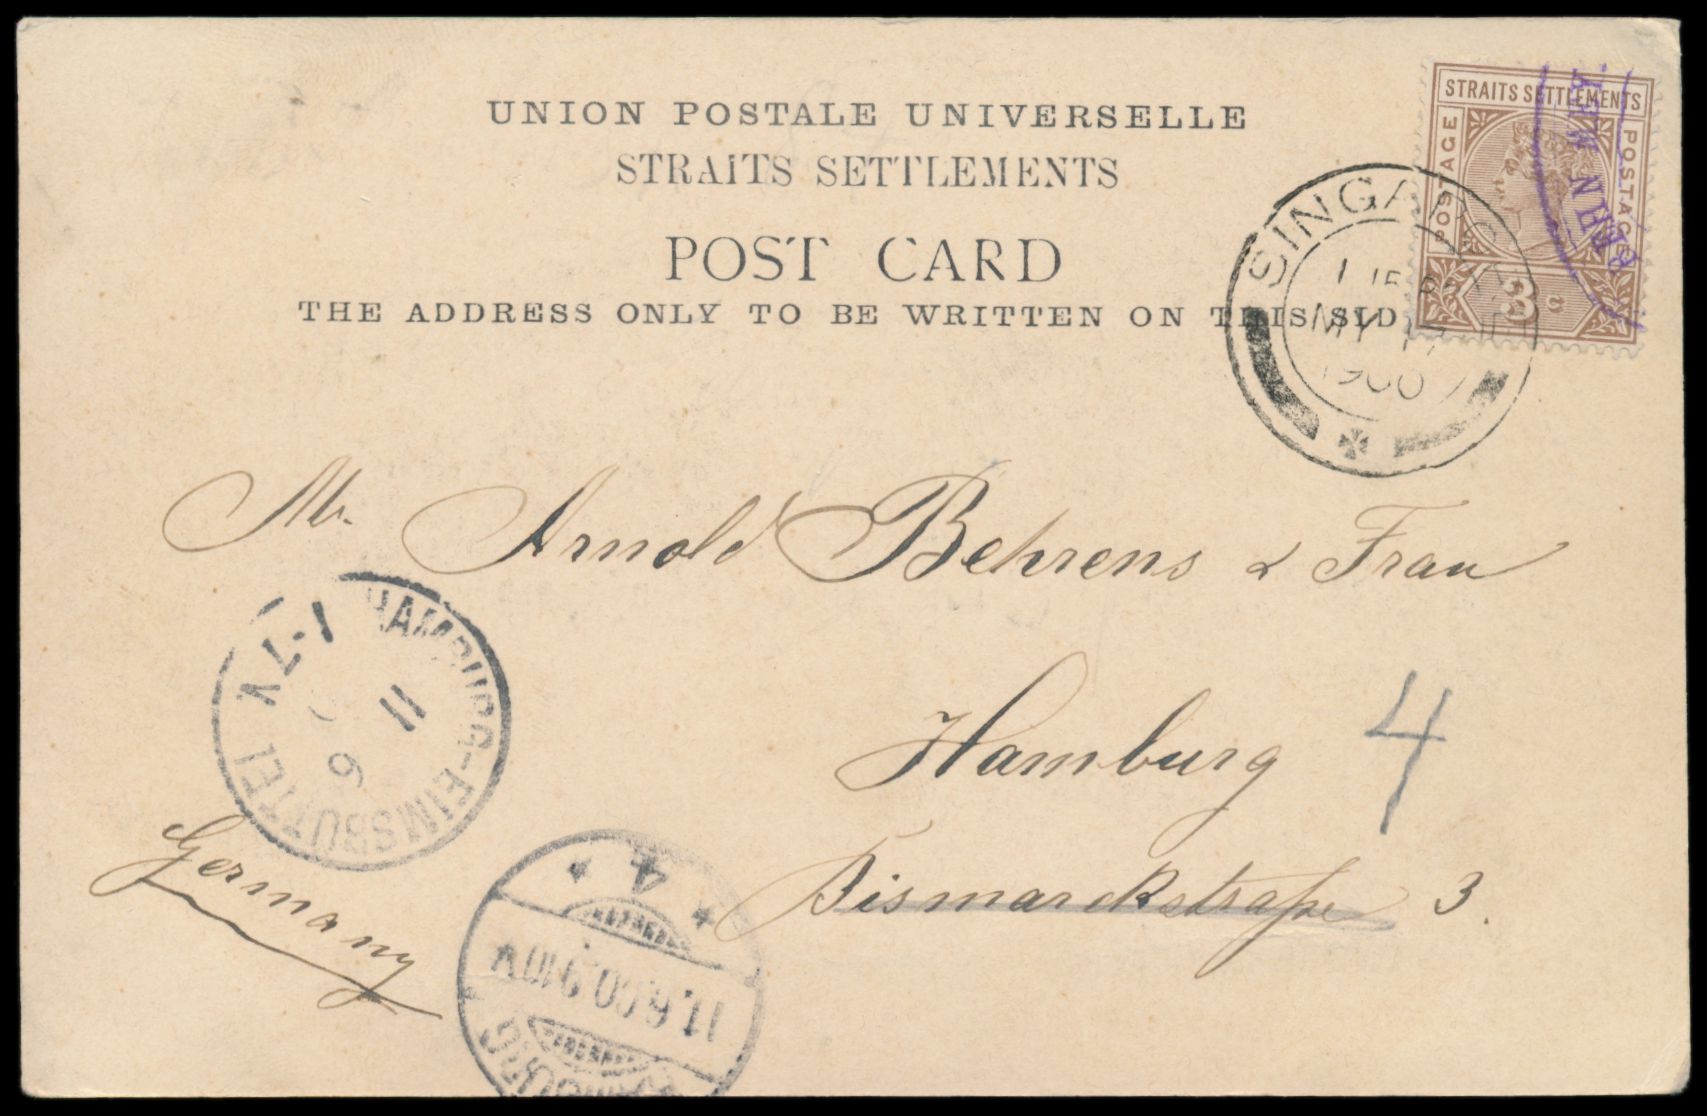 UNION POSTALE UNIVERSELLE
STRAITS SETTLEMENTS
POST CARD
THE ADDRESS ONLY TO BE WRITTEN ON THIS SID
STRAITS SETTLEMENTS
POSTAGE
POSTAGE
3 c
SINGAPORE
MY 17
1900
Mr. Arnold Behrens & Frau
Hamburg
4
Bismarckstraße 3.
Germany
HAMBURG-EIMSBÜTTEL
11
6
* 4 *
11.6.00.9-10V
HAMBURG